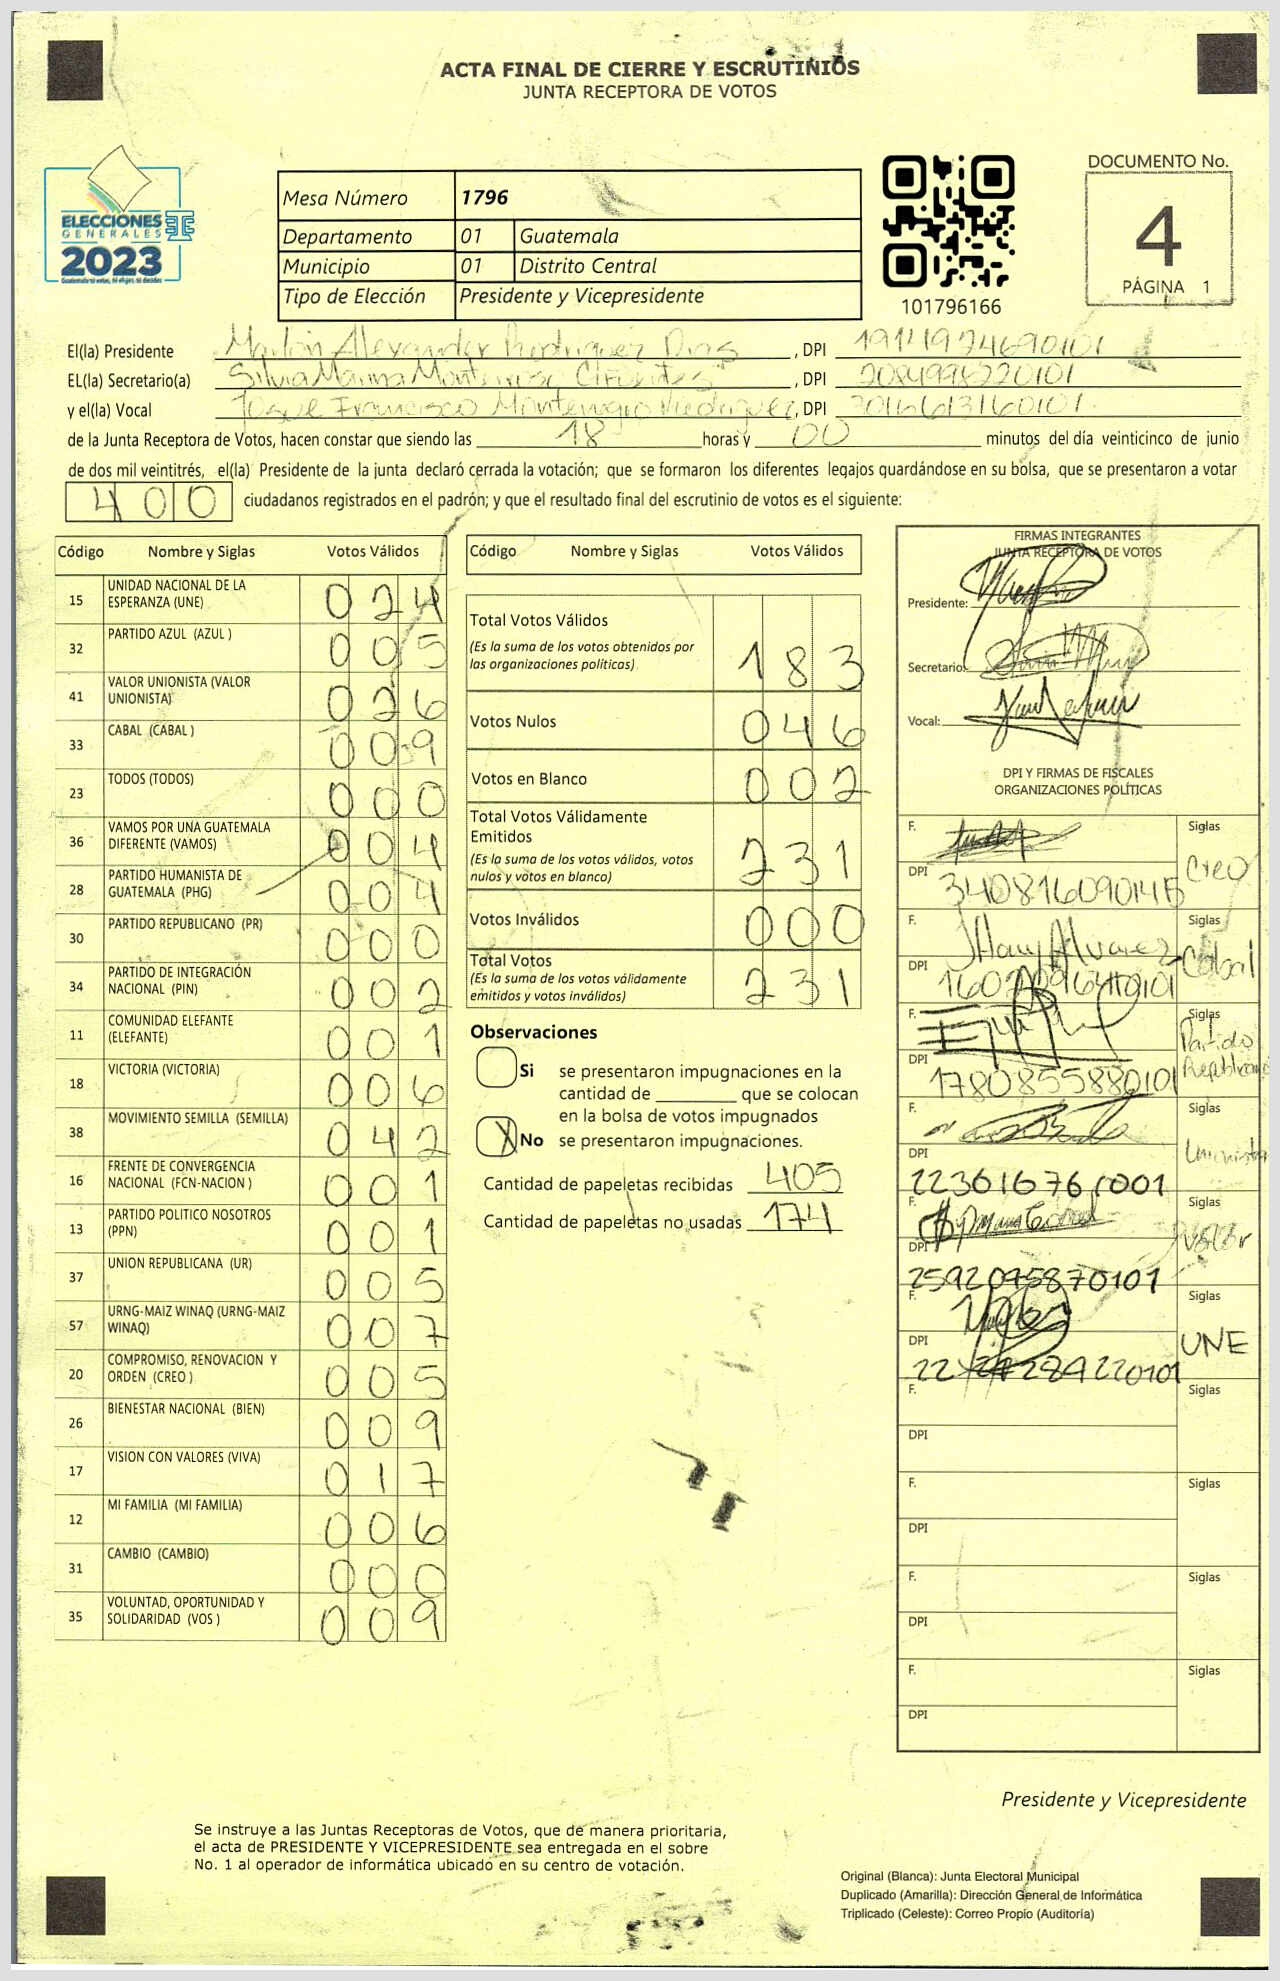 ACTA FINAL DE CIERRE Y ESCRUTINIOS
JUNTA RECEPTORA DE VOTOS
ELECCIONES
GENERALES
2023
Mesa Número 1796
Departamento 01 Guatemala
Municipio 01 Distrito Central
Tipo de Elección Presidente y Vicepresidente
101796166
DOCUMENTO No.
4
PÁGINA 1
El(la) Presidente Marlon Alexander Rodriguez Dias, DPI 1914974690101
EL(la) Secretario(a) Silvia Marina Monterroso Cifuentes, DPI 2084998220101
y el(la) Vocal Josue Francisco Montenegro Rodriguez, DPI
de la Junta Receptora de Votos, hacen constar que siendo las 18 horas y 00 minutos del día veinticinco de junio
de dos mil veintitrés, el(la) Presidente de la junta declaró cerrada la votación; que se formaron los diferentes legajos guardándose en su bolsa, que se presentaron a votar
400 ciudadanos registrados en el padrón; y que el resultado final del escrutinio de votos es el siguiente:
Código Nombre y Siglas Votos Válidos
15 UNIDAD NACIONAL DE LA ESPERANZA (UNE) 024
32 PARTIDO AZUL (AZUL ) 005
41 VALOR UNIONISTA (VALOR UNIONISTA) 026
33 CABAL (CABAL ) 009
23 TODOS (TODOS) 000
36 VAMOS POR UNA GUATEMALA DIFERENTE (VAMOS) 004
28 PARTIDO HUMANISTA DE GUATEMALA (PHG) 004
30 PARTIDO REPUBLICANO (PR) 000
34 PARTIDO DE INTEGRACIÓN NACIONAL (PIN) 002
11 COMUNIDAD ELEFANTE (ELEFANTE) 001
18 VICTORIA (VICTORIA) 006
38 MOVIMIENTO SEMILLA (SEMILLA) 042
16 FRENTE DE CONVERGENCIA NACIONAL (FCN-NACION ) 001
13 PARTIDO POLITICO NOSOTROS (PPN) 001
37 UNION REPUBLICANA (UR) 005
57 URNG-MAIZ WINAQ (URNG-MAIZ WINAQ) 007
20 COMPROMISO, RENOVACION Y ORDEN (CREO ) 005
26 BIENESTAR NACIONAL (BIEN) 009
17 VISION CON VALORES (VIVA) 017
12 MI FAMILIA (MI FAMILIA) 006
31 CAMBIO (CAMBIO) 000
35 VOLUNTAD, OPORTUNIDAD Y SOLIDARIDAD (VOS ) 009
Código Nombre y Siglas Votos Válidos
Total Votos Válidos 183
(Es la suma de los votos obtenidos por
las organizaciones políticas)
Votos Nulos 046
Votos en Blanco 002
Total Votos Válidamente
Emitidos 231
(Es la suma de los votos válidos, votos
nulos y votos en blanco)
Votos Inválidos 000
Total Votos 231
(Es la suma de los votos válidamente
emitidos y votos inválidos)
Observaciones
Si se presentaron impugnaciones en la
cantidad de ________ que se colocan
en la bolsa de votos impugnados
X No se presentaron impugnaciones.
Cantidad de papeletas recibidas 405
Cantidad de papeletas no usadas 174
FIRMAS INTEGRANTES
JUNTA RECEPTORA DE VOTOS
Presidente:
Secretario:
Vocal:
DPI Y FIRMAS DE FISCALES
ORGANIZACIONES POLÍTICAS
F. Siglas Creo
DPI
F. Jhony Alvarez Siglas Cabal
DPI
F. Siglas Partido Republicano
DPI 1780855880101
F. Siglas Unionista
DPI 2236167610 01
F. Siglas Valor
DPI 2592095870101
F. Siglas UNE
DPI
F. Siglas
DPI
F. Siglas
DPI
F. Siglas
DPI
F. Siglas
DPI
Presidente y Vicepresidente
Se instruye a las Juntas Receptoras de Votos, que de manera prioritaria,
el acta de PRESIDENTE Y VICEPRESIDENTE sea entregada en el sobre
No. 1 al operador de informática ubicado en su centro de votación.
Original (Blanca): Junta Electoral Municipal
Duplicado (Amarilla): Dirección General de Informática
Triplicado (Celeste): Correo Propio (Auditoría)